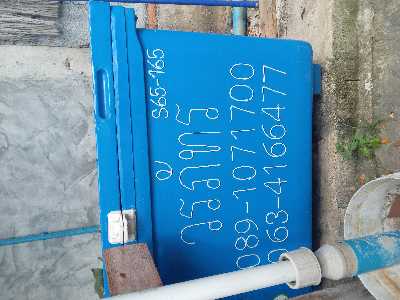 S65-165
วรภัทร
089-1071700
063-4166477